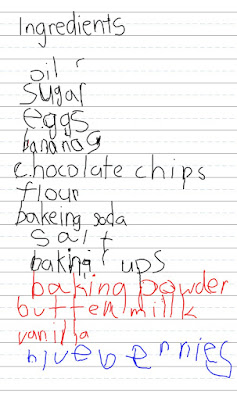 Ingredients
oil
sugar
eggs
banana
chocolate chips
flour
bakeing soda
salt
baking ups
baking powder
butter milk
vanilla
blueberries